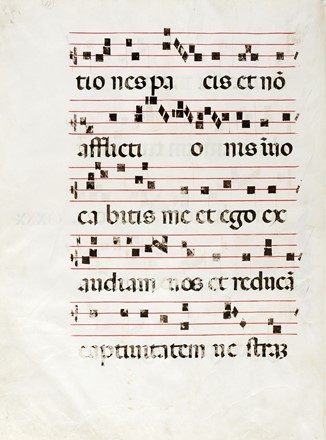 tio nes pa cis et nō
afflicti o nis īuo
ca bitis me et ego ex
audiam uos et reducā
captiuitatem ue straz